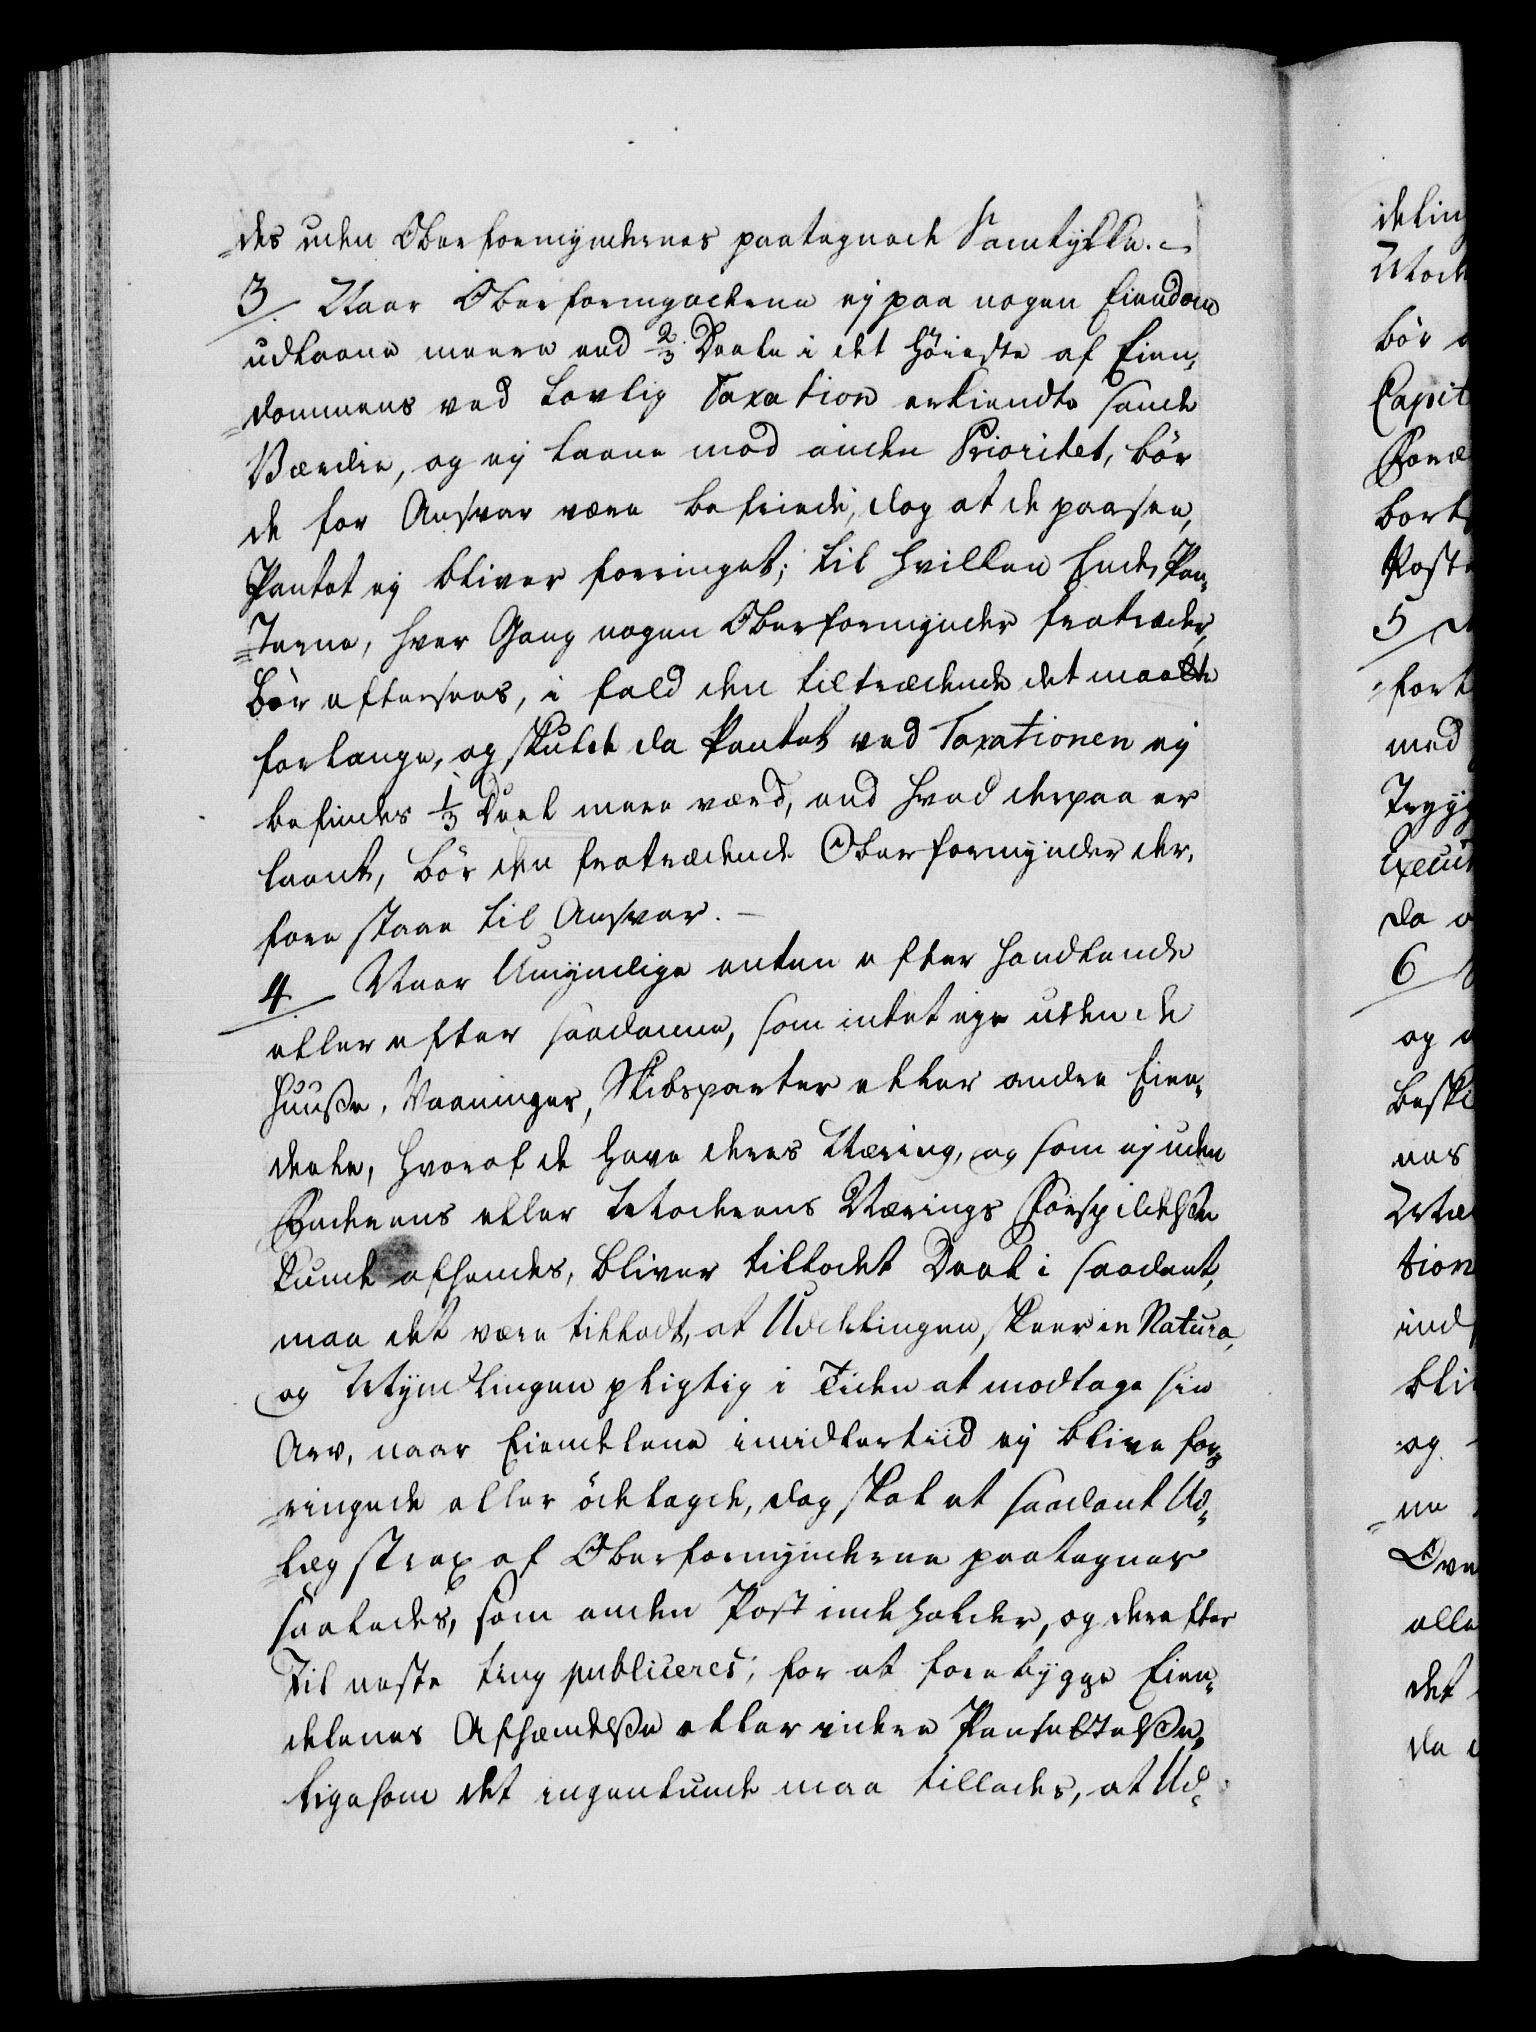 des uden Oberformyndernes paategnede Samtykke. -
3/ Naar Oberformynderne ej paa nogen Eiendom
udlaane meere end 2/3 Deele i det høieste af Eien-
dommens ved Lovlig Taxation erkiendte sande
Værdie, og ej laane mod anden Prioritet, bør
de for Ansvar være befriede, dog at de paasee,
Pantet ej bliver forringet; til hvilken Ende, Pan-
terne, hver Gang nogen Oberformynder fratræder,
bør eftersees, i fald den tiltrædende det maatte
forlange, og skulde da Pantet ved Taxationen ej
befindes 1/3 Deel mere værd, end hvad derpaa er
laant, bør den fratrædende Oberformynder der-
fore staae til Ansvar. -
4/ Naar Umyndige enten efter Handlende
eller efter saadanne, som intet eje uden de
Huuse, Vaaninger, Skibsparter eller andre Eien-
deele, hvoraf de have deres Næring, og som ej uden
Faderens eller Moderens Nærings Forspildelse
kunde afhendes, bliver tillodet Deel i saadant,
maa det være tilladt, at Udelingen skeer in Natura,
og Myndlingen pligtig i Tiden at modtage sin
Arv, naar Eiendelene imidlertiid ej blive for-
ringede eller ödelagde, dog skal et saadant Ud-
læg strax af Oberformynderne paategnes
saaledes, som anden Post indeholder, og derefter
til neste Ting publiceres, for at forebygge Eien-
delenes Afhændelse eller videre Pantsættelse,
ligesom det ingenlunde maa tillades, at Ud-
Capit
5/
med
Trygg
Execut
da
6/
og
tion
og
det